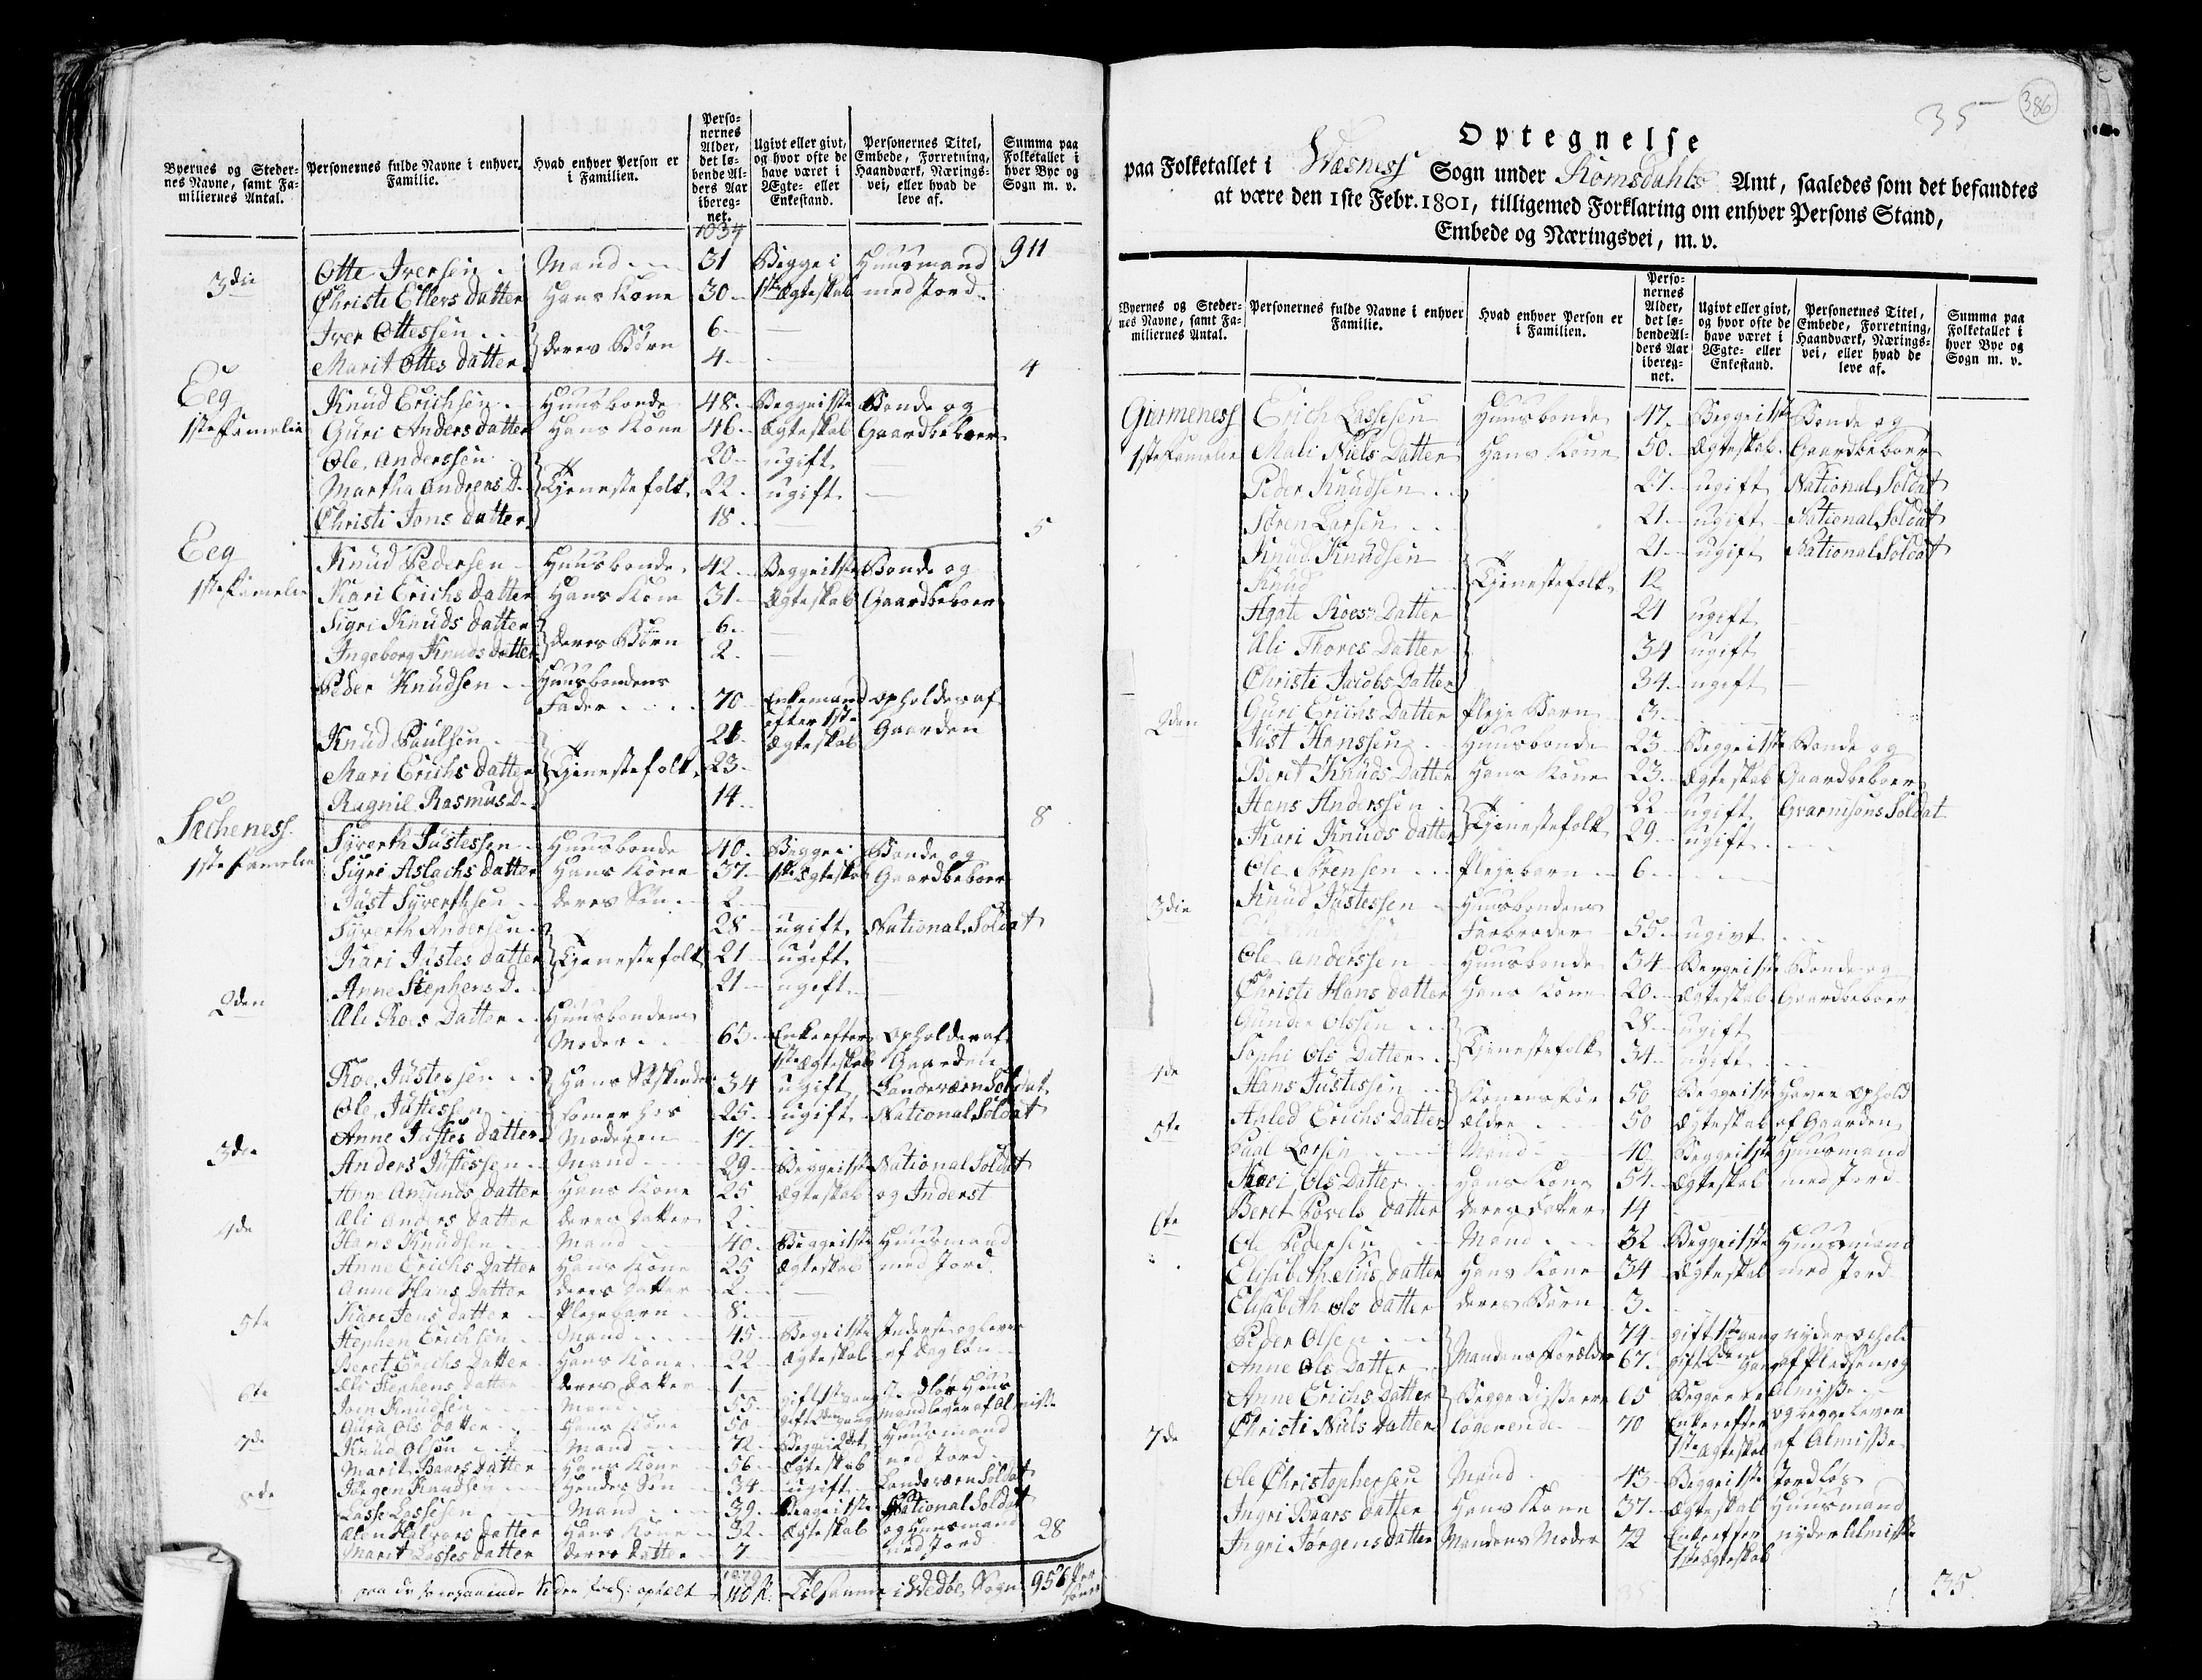 Byernes og Steder-
nes Navne, samt Fa-
miliernes Antal.
Personernes fulde Navne i enhver
Familie.
Hvad enhver Person er
i Familien.
Perso-
nernes
Alder,
det lø-
bende Al-
ders Aar
ibereg-
net.
Ugivt eller givt,
og hvor ofte de
have været i
Ægte- eller
Enkestand.
Personernes Titel,
Embede, Forretning,
Haandværk, Nærings-
vei, eller hvad de
leve af.
Summa paa
Folketallet i
hver Bye og
Sogn m. v.
1034
911
3die Otte Iversen Mand 31 Begge i Huusmand
Christi Ellers Datter Hans Kone 30 1ste Ægteskab med Jord
Iver Ottessen deres Børn 6
Marit Ottes Datter 4
4
Eeg Knud Erichsen Huusbonde 48 Begge i 1ste Bonde og
1ste Famelie Guri Anders datter Hans Kone 46 Ægteskab Gaardbeboer
Ole Anderssen 20 ugift
Martha Andreas D. Tjenestefolk 22 ugift
Christi Jons datter 18
5
Eeg Knud Pedersen Huusbonde 42 Begge i 1ste Bonde og
1ste Famelie Kari Erichs Datter Hans Kone 31 Ægteskab Gaardbeboer
Sigri Knuds datter deres Børn 6
Ingeborg Knuds datter 2
Peder Knudsen Huusbondens
Fader 70 Enkemand opholdes af
efter 1ste Gaarden
Knud Paulsen 21 Ægteskab
Mari Erichs datter Tjenestefolk 23
Ragnil Rasmus D. 14
8
Sæcheness Syverth Justessen Huusbonde 40 Begge i Bonde og
1ste Famelie Sigri Aslachs datter Hans Kone 37 1ste Ægteskab Gaardbeboer
Just Syverthsen deres Søn 2
Syverth Andersen 28 ugift National Soldat
Kari Justes datter Tjenestefolk 21 ugift
Anne Stephens D. 21 ugift
2den Ali Roes Datter Huusbondens
Moder 65 Enke efter opholdes af
1ste Ægteskab Gaarden
Roe Justessen Hans Søskende 34 ugift Landværn Soldat
Ole Justessen som er hos 25 ugift National Soldat
Anne Justes datter Moderen 17
3die Anders Justessen Mand 29 Begge i 1ste National Soldat
Anne Amunds datter Hans Kone 25 Ægteskab og Inderst
Ali Anders datter deres datter 2
4de Hans Knudsen Mand 40 Begge i 1ste Huusmand
Anne Erichs Datter Hans Kone 25 Ægteskab med Jord
Anne Hans Datter deres datter 2
Kari Jens datter Plejebarn 8
5te Stephen Erichsen Mand 45 Begge i 1ste Inderste og lever
Beret Erichs Datter Hans Kone 22 Ægteskab af dagløn
Ali Stephens datter deres datter 1
6te Iven Knudsen Mand 55 gift 1ste gang
Guru Ols datter Hans Kone 50 gift 2den gang mand lever af Almisse
7de Knud Olsen Mand 72 Begge i 2det Huusmand
Marit Baars Datter Hans Kone 56 Ægteskab med Jord
Jørgen Knudsen Hendes Søn 34 ugift Landværn Soldat
8de Lasse Lassesen Mand 39 Begge i 1ste National Soldat
Alen Halvors datter Hans Kone 32 Ægteskab og Huusmand
Marit Lasses datter deres datter 7 med Jord
28
1279
Tilsammen i Wedbø Sogn 956
35
386
Optegnelse
paa Folketallet i Wæsness Sogn under Romsdahls Amt, saaledes som det befandtes
at være den 1ste Febr. 1801, tilligemed Forklaring om enhver Persons Stand,
Embede og Næringsvei, m. v.
Byernes og Steder-
nes Navne, samt Fa-
miliernes Antal.
Personernes fulde Navne i enhver
Familie.
Hvad enhver Person er
i Familien.
Perso-
nernes
Alder,
det lø-
bende Al-
ders Aar
ibereg-
net.
Ugivt eller givt,
og hvor ofte de
have været i
Ægte- eller
Enkestand.
Personernes Titel,
Embede, Forretning,
Haandværk, Nærings-
vei, eller hvad de
leve af.
Summa paa
Folketallet i
hver Bye og
Sogn m. v.
Gjermeness Erich Lassesen Huusbonde 47 Begge i 1ste Bonde og
1ste Famelie Mali Niels Datter Hans Kone 50 Ægteskab Gaardbeboer
Peder Knudsen 27 ugift National Soldat
Søren Larsen 21 ugift National Soldat
Knud Knudsen 21 ugift National Soldat
Knud Tjenestefolk 12
Agate Roes Datter 24 ugift
Ali Thores Datter 34 ugift
Christi Jacobs Datter 34 ugift
Guri Erichs Datter Pleje Barn 3
2den Just Hanssen Huusbonde 23 Begge i 1ste Bonde og
Beret Knuds Datter Hans Kone 23 Ægteskab Gaardbeboer
Hans Anderssen 22 ugift Gvarnisons Soldat
Kari Knuds datter Tjenestefolk 29 ugift
Ole Sørensen Plejebarn 6
Knud Justessen Huusbondens
Farbroder 55 ugivt
3die Ole Anderssen Huusbonde 34 Begge i 1ste Bonde og
Christi Hans datter Hans Kone 20 Ægteskab Gaardbeboer
Gunder Olssen 28 ugift
Sophi Ols Datter Tjenestefolk 34 ugift
4de Hans Justessen Konens For 50 Begge i 1ste Haver Ophold
Ahled Erichs Datter ældre 50 Ægteskab af Gaarden
5te Paal Larsen Mand 40 Begge i 1ste Huusmand
Kari Ols Datter Hans Kone 54 Ægteskab med Jord
Beret Povels datter deres datter 14
6te Ole Pedersen Mand 32 Begge i 1ste Huusmand
Elisabeth datter Hans Kone 34 Ægteskab med Jord
Elisabeth Ols datter deres Barn 3
Peder Olsen Mandens Forældre 74 gift 1ste gang nyder ophold
Anne Ols Datter 67 gift 2den gang af Pladsen og
Anne Erichs Datter Begge Disse ere 65 Almisse
Christi Niels Datter logerende 70 Enke efter og begge lever
1ste Ægteskab af Almisse
7de Ole Christophersen Mand 43 Begge i 1ste Jordløs
Ingri Baars datter Hans Kone 37 Ægteskab Huusmand
Ingri Jørgens datter Mandens Moder 72 Enke efter nyder Almisse
1ste Ægteskab
35